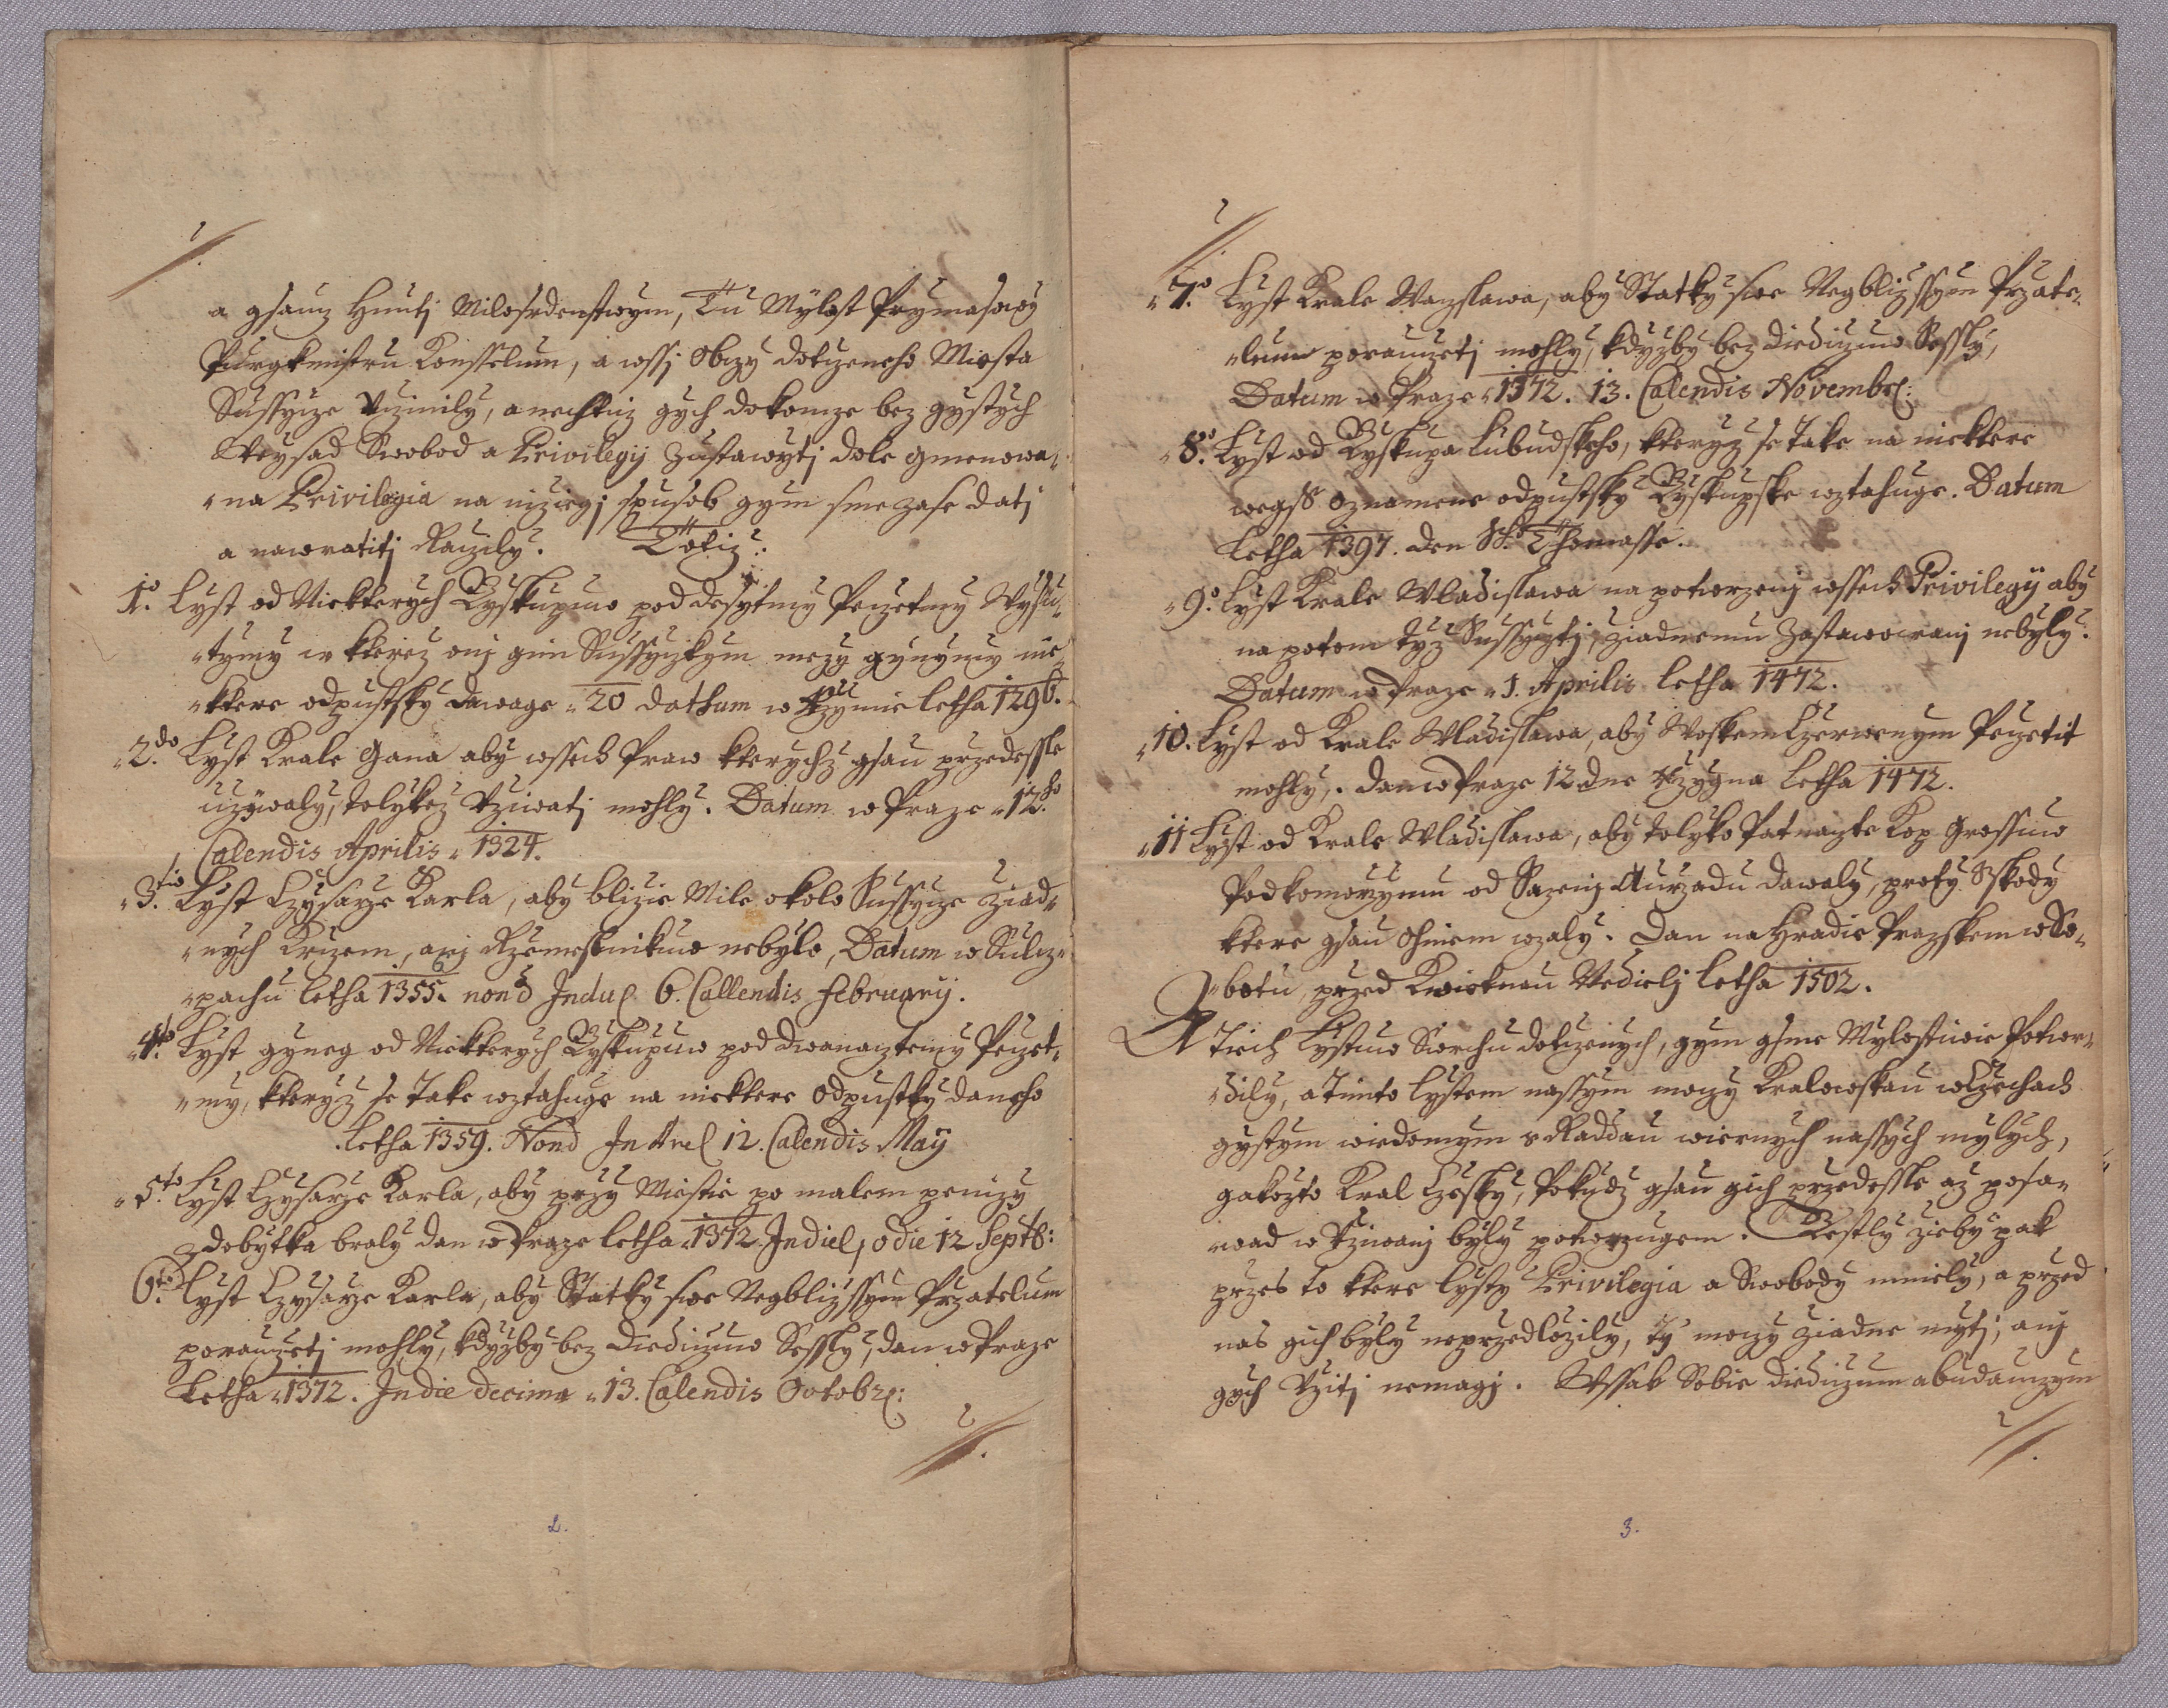 a gsauz Hnuti Milosrdenstwym, Tu Mylost Prymasowy
Purgkmistru Konsselum, a wssi Obczy dotczeneho Miesta
Sussycze Uczinily, a nechticz gych dokoncze bez gystych
Weysad Swobod a Privilegij Zustawyti dole gmenowa-
-na Privilegia na niziegj spusob gym sme zase dati
a nawratiti Raczily. Totiz:
1o. Lyst od Niekterych Byskupuw pod desytmy Peczetmy Wysu-
-tymy w kterez oni gim Sussyczkym mezy gynymy nie-
-ktere odpustky dawage 20 dathum w Rzymie Letha 1296.
2do. Lyst Krale Gana aby wssech Praw kterychz gsau przedessle
uzywaly, tolykez Vziwati mohly. Datum w Praze 12ho.
Calendis Aprilis 1324.
3tio. Lyst Czysarze Karla, aby blizie Mile okolo Sussycze ziad-
-nych Krczem, anj Rzemeslnikuw nebylo, Datum w Sulcz-
-pachu Letha 1355. nond Induc 6. Callendis february.
4to. Lyst gyneg od Niekterych Byskupuw pod dwanacztemy Peczet-
-my, kteryz se Take wztahuge na niektere Odpustky daneho
Letha 1359. Nond Indrel 12. Calendis Maij
5to. Lyst Czysarze Karla, aby przy Miestie po malem penizy
zdobytka braly dan w Praze Letha 1372 Indiel, odie 12 Septb:
6to. Lyst Czysarze Karla, aby Statky swe Negblizssym Przatelum
porauczeti mohly, kdyzby bez diediczuw Sessly, dan w Praze
Letha 1372. Indie decima 13. Calendis Octobr:
2.
7o. Lyst Krale Waczslawa, aby Statky swe Negblizssym Przate-
-lum porauczeti mohly, kdyzby bez diediczuw Sessly,
Datum w Praze 1372. 13. Calendis Novembr:
8o. Lyst od Byskupa Lubudskeho, kteryz se Take na niektere
wegss oznamene odpustky Byskupske wztahuge. Datum
Letha 1397. den St. Thomasse.
9o. Lyst Krale Wladislawa na potwrzenj wssech Privilegij aby
na potom tyz Sussyczti, ziadnemu Zastawowanj nebyly.
Datum w Praze 1. Aprilis Letha 1472.
10. Lyst od Krale Wladislawa, aby Woskem Czerwenym Peczetit
mohly. dan w Praze 12 dne Rzygna Letha 1472.
11 Lyst od Krale Wladislawa, aby tolyko Patnaczte Kop Grossuw
Podkomorzymu od Sazenj Aurzadu dawaly, proty Sskody
ktere gsau Ohniem wzaly. Dan na Hradie Prazskem w So-
-botu, przed Kwietnau Nedielj Letha 1502.
A Tiech Lystuw Swrchu dotczenych, gym gsme Mylostiwie Potwr-
-dily, a Timto Lystem nassym moczy Kralowskau w Czechach
gystym wiedomym s Raddau wiernych nassych mylych,
gakozto Kral Czesky, Pokudz gsau gich przedessle az posa-
-wad w Vziwanj byly potwrzugem. Gestly zieby pak
przes to ktere Lysty Privilegia a Swobody mniely, a przed
nas gich byly neprzedlozily, ty moczy ziadne myti, anj
gych Vziti nemagj. Wssak Sobie diediczum a budauczym
3.